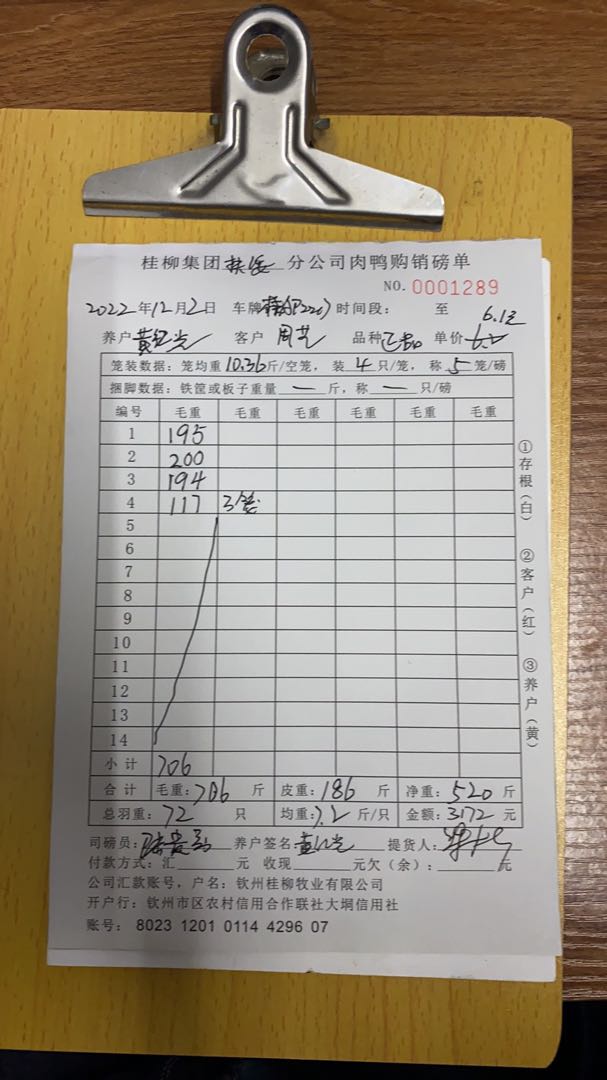 桂柳集团 分公司肉鸭购销磅单
NO. 0001289
2022年12月2日 车牌 时间段： 至
6.1元
养户 黄红光 客户 周艺 品种 单价
笼装数据：笼均重10.36斤/空笼，装4只/笼，称5笼/磅
捆脚数据：铁筐或板子重量—斤，称—只/磅
编号 毛重 毛重 毛重 毛重 毛重 毛重
1 195
2 200
3 194
4 117 3笼
5
6
7
8
9
10
11
12
13
14
小计 706
合计 毛重：706斤 皮重：186斤 净重：520斤
总羽重：72只 均重：7.2斤/只 金额：3172元
司磅员： 养户签名：黄红光 提货人：
付款方式：汇 元 收现 元欠（余）： 元
公司汇款账号，户名：钦州桂柳牧业有限公司
开户行：钦州市区农村信用合作联社大垌信用社
账号：8023 1201 0114 4296 07
①存根（白）
②客户（红）
③养户（黄）